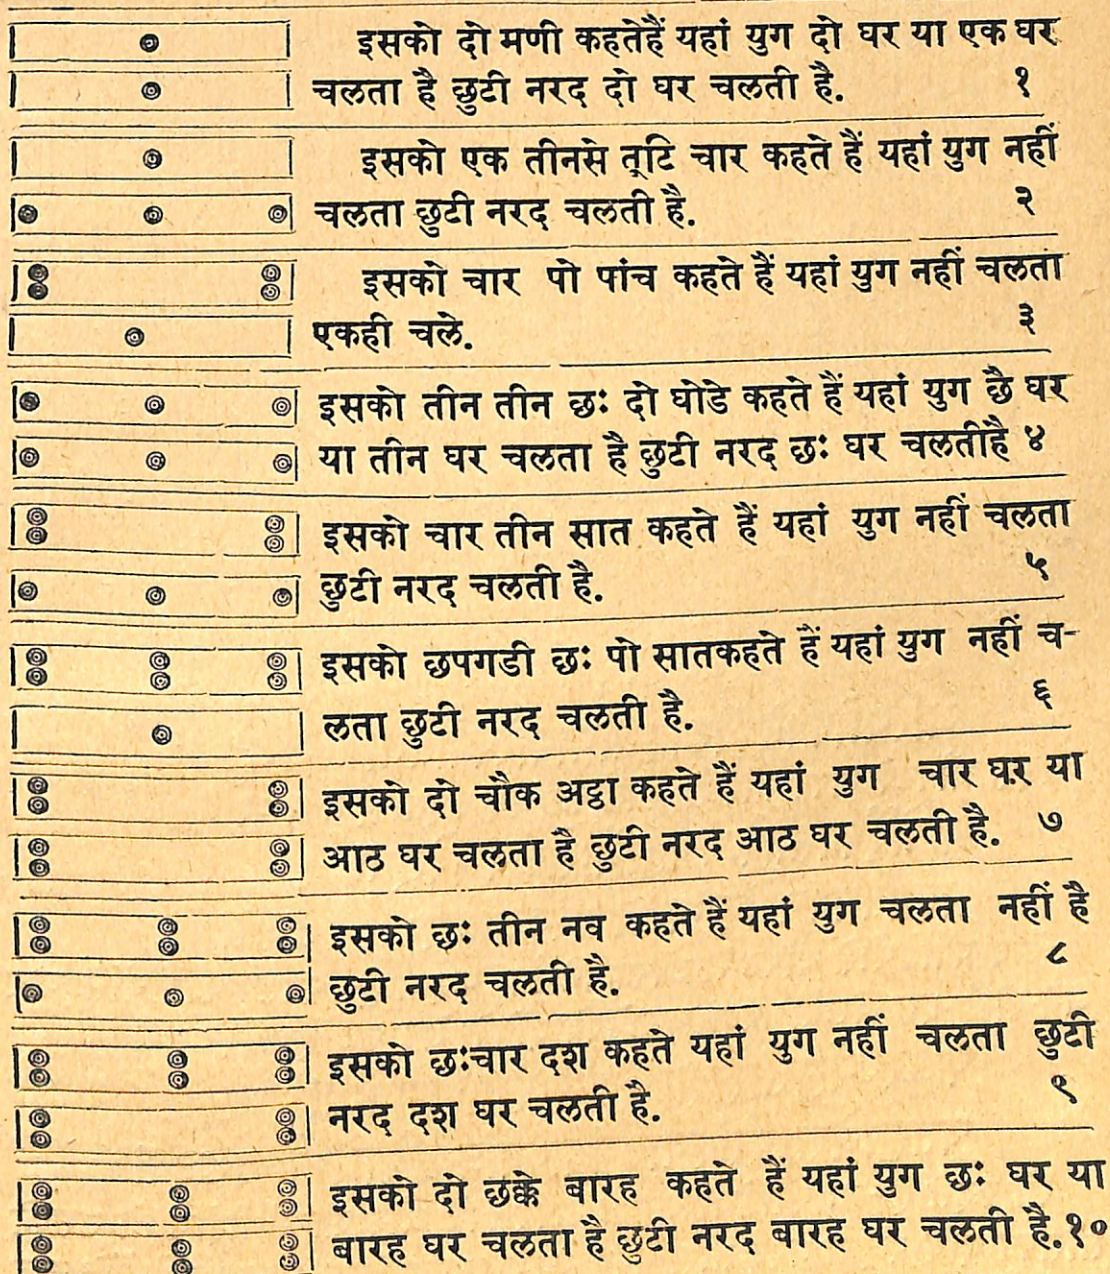 इसको दो मणी कहतेहैं यहां युग दो घर या एक घर
चलता है छुटी नरद दो घर चलती है. १
इसको एक तीनसे तृटि चार कहते हैं यहां युग नहीं
चलता छुटी नरद चलती है. २
इसको चार पो पांच कहते हैं यहां युग नहीं चलता
एकही चले. ३
इसको तीन तीन छः दो घोडे कहते हैं यहां युग छै घर
या तीन घर चलता है छुटी नरद छः घर चलतीहै ४
इसको चार तीन सात कहते हैं यहां युग नहीं चलता
छुटी नरद चलती है. ५
इसको छपगडी छः पो सातकहते हैं यहां युग नहीं च-
लता छुटी नरद चलती है. ६
इसको दो चौक अट्ठा कहते हैं यहां युग चार घर या
आठ घर चलता है छुटी नरद आठ घर चलती है. ७
इसको छः तीन नव कहते हैं यहां युग चलता नहीं है
छुटी नरद चलती है. ८
इसको छःचार दश कहते यहां युग नहीं चलता छुटी
नरद दश घर चलती है. ९
इसको दो छक्के बारह कहते हैं यहां युग छः घर या
बारह घर चलता है छुटी नरद बारह घर चलती है.१०